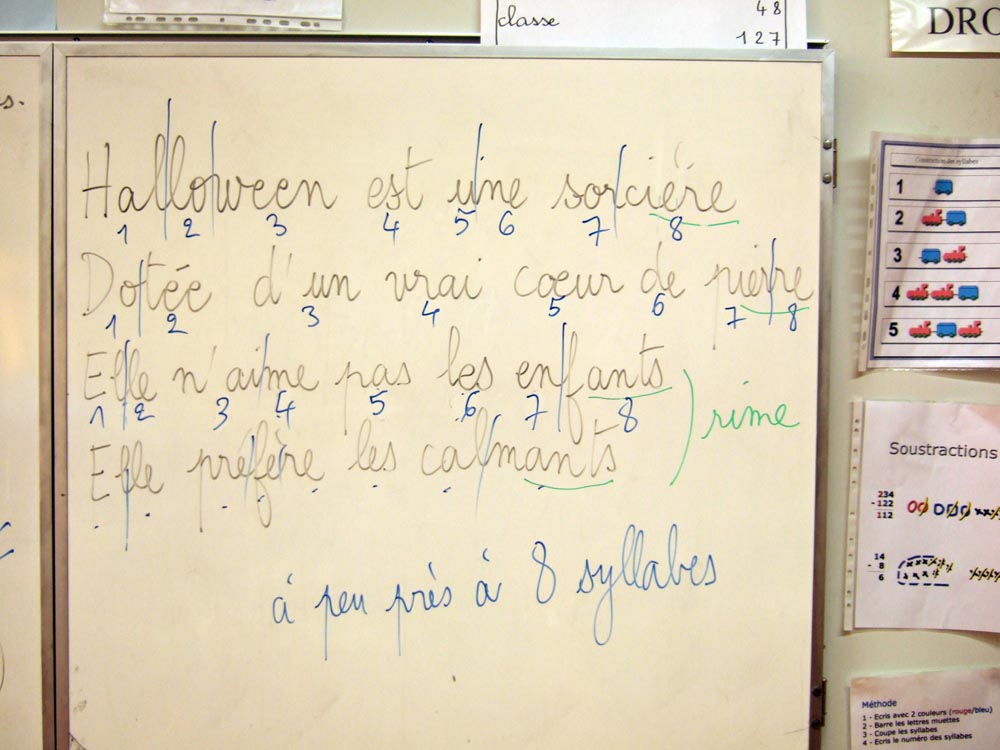 classe 48
127
DRO
s.
Halloween est une sorcière
1 2 3 4 5 6 7 8
Dotée d'un vrai coeur de pierre
1 2 3 4 5 6 7 8
Elle n'aime pas les enfants
1 2 3 4 5 6 7 8
rime
Elle préfère les calmants
à peu près à 8 syllabes
1
2
3
4
5
Soustractions
234
-122
112
14
- 8
6
Méthode
1 - Ecris avec 2 couleurs (rouge/bleu)
2 - Barre les lettres muettes
3 - Coupe les syllabes
4 - Ecris le numéro des syllabes